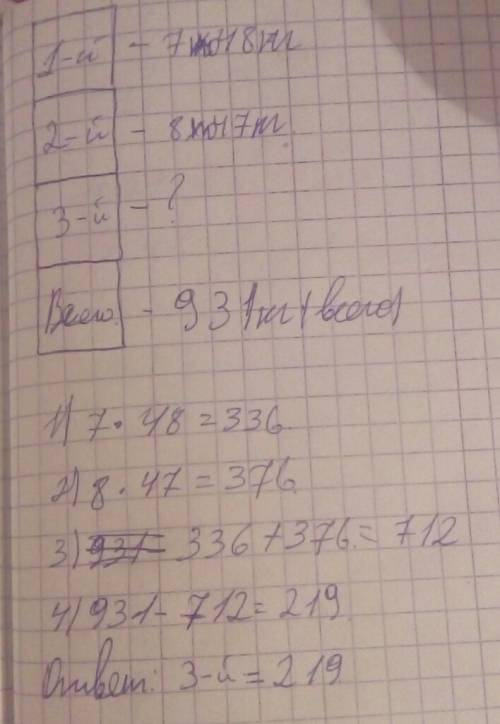 1-й - 7 48 кг
2-й - 8 47 кг
3-й - ?
Всего - 931 кг (всего)
1) 7 · 48 = 336
2) 8 · 47 = 376
3) 336 + 376 = 712
4) 931 - 712 = 219
Ответ: 3-й = 219